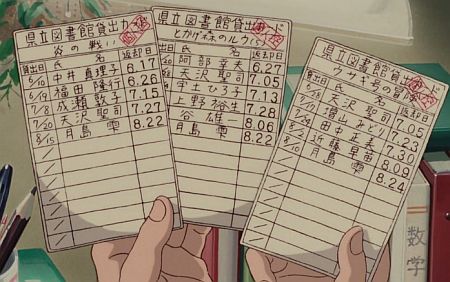 県立図書館貸出カード
炎の戦い
貸出日 氏 名 返却日
中井 真理子 6.17
6/19 福田 隆行 6.26
成瀬 敦子 7.15
7/20 天沢 聖司 7.27
8/15 月島 雫 8.22
県立図書館貸出カード
とかげ森のルウ(5)
貸出日 氏 名 返却日
阿部 幸夫 6.27
天沢 聖司 7.05
宇土 ひろ子 7.13
上野 裕生 7.28
谷 雄一 8.06
月島 雫 8.22
県立図書館貸出カード
ウサギ号の冒険
貸出日 氏 名 返却日
天沢 聖司 7.05
増山 みどり 7.23
田中 正美 7.30
近藤 早苗 8.09
月島 雫 8.24
数学